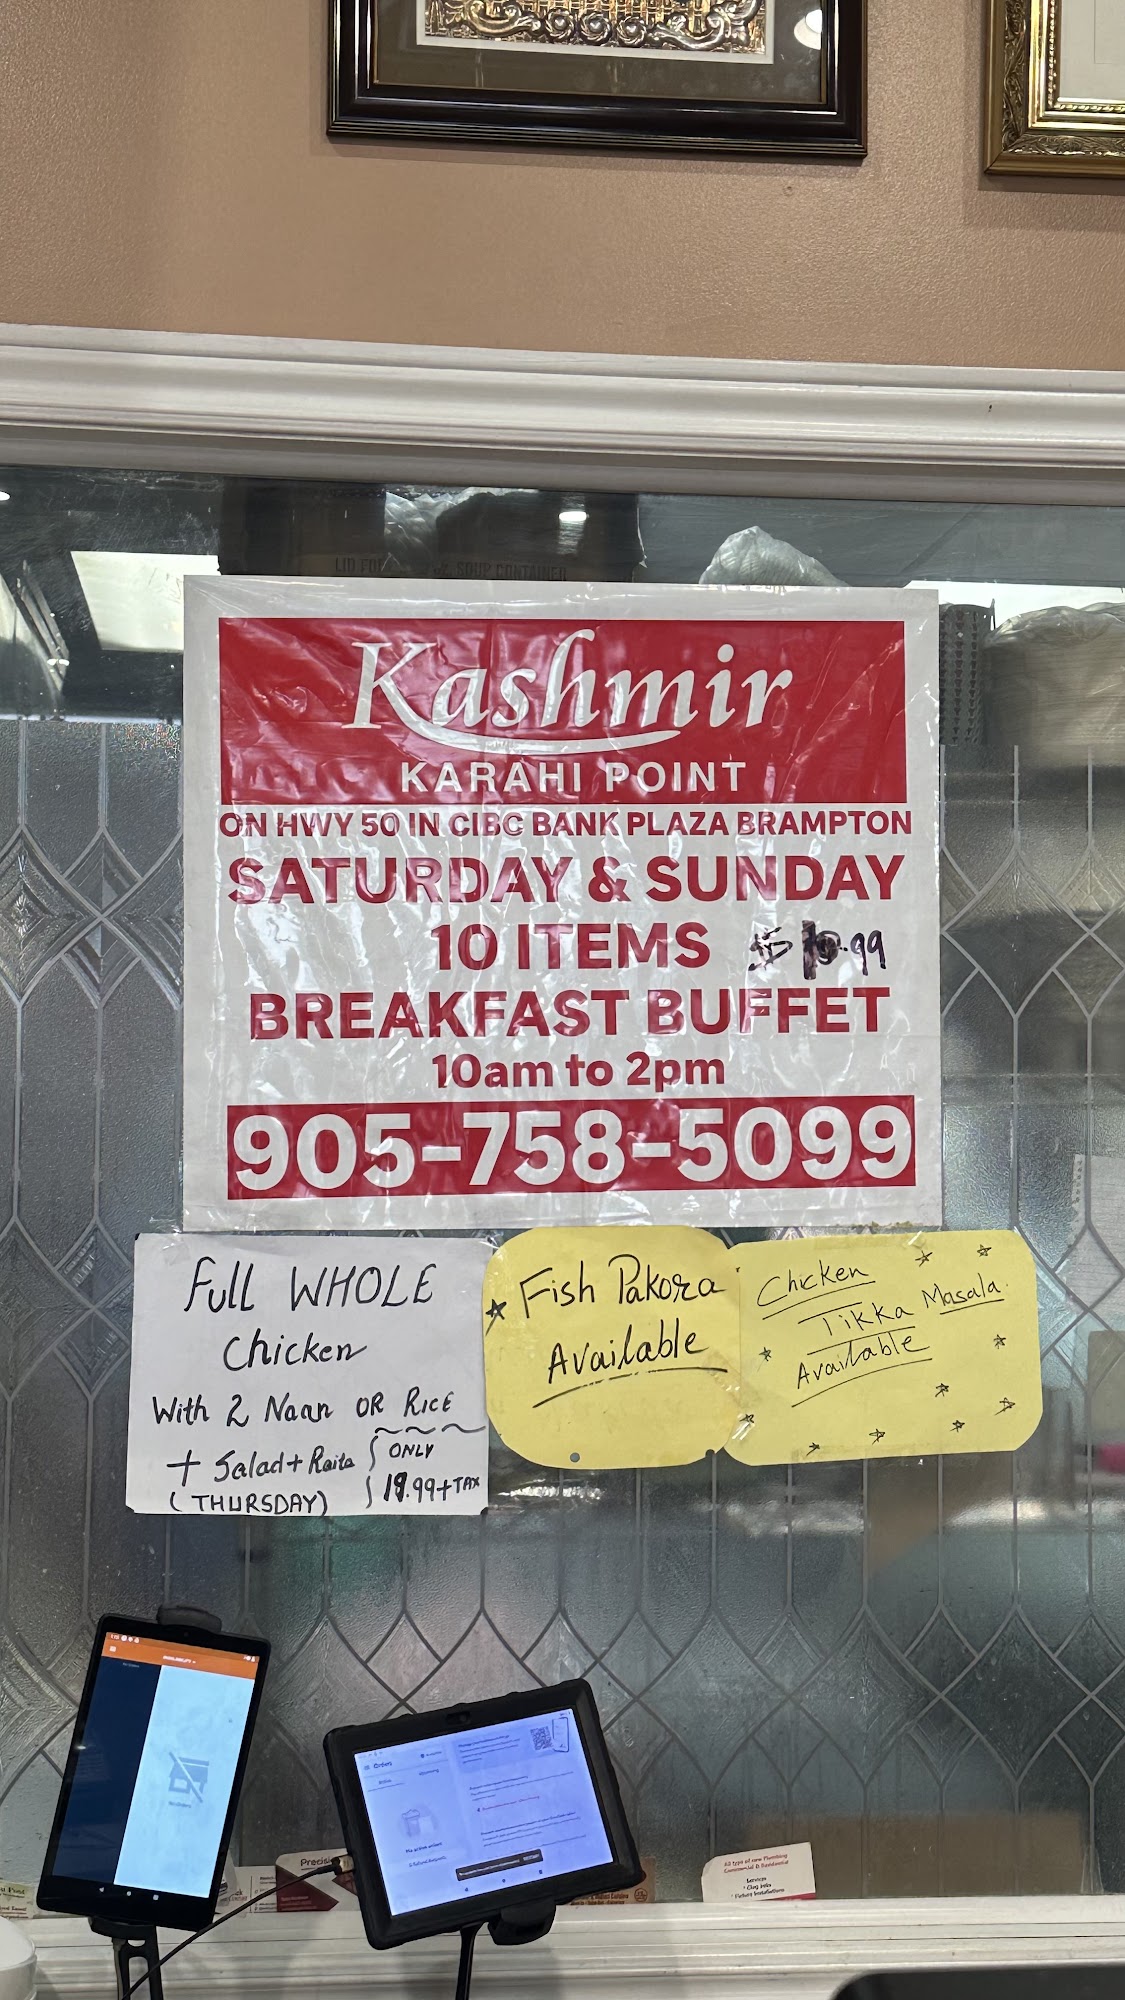 LID FOR
SOUP CONTAINER
Kashmir
KARAHI POINT
ON HWY 50 IN CIBC BANK PLAZA BRAMPTON
SATURDAY & SUNDAY
10 ITEMS
BREAKFAST BUFFET
10am to 2pm
905-758-5099
Full WHOLE
Chicken
With 2 Naan OR RICE
+ Salad + Raita ONLY
(THURSDAY) 19.99 + TAX
Fish Pakora
Available
Chicken
Tikka Masala
Available
Orders
Precision
All type of new Plumbing
Commercial & Residential
Services